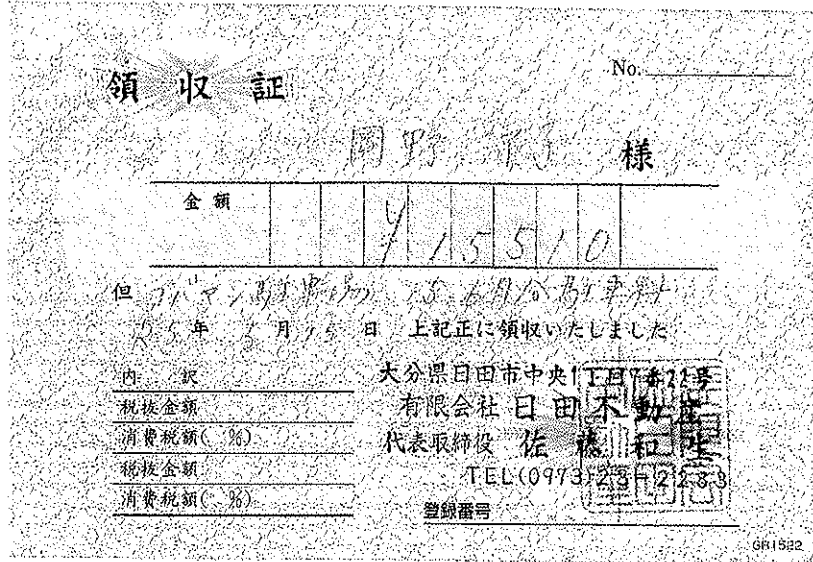 領収証
No.
岡野 様
金額 ¥15510
但 コバヤシ駐車場 5.6月分駐車料
25年 5月15日 上記正に領収いたしました
内訳
税抜金額
消費税額( %)
税抜金額
消費税額( %)
大分県日田市中央1丁目7番22号
有限会社 日田不動産
代表取締役 佐藤和生
TEL(0973)23-2233
登録番号
GR1522